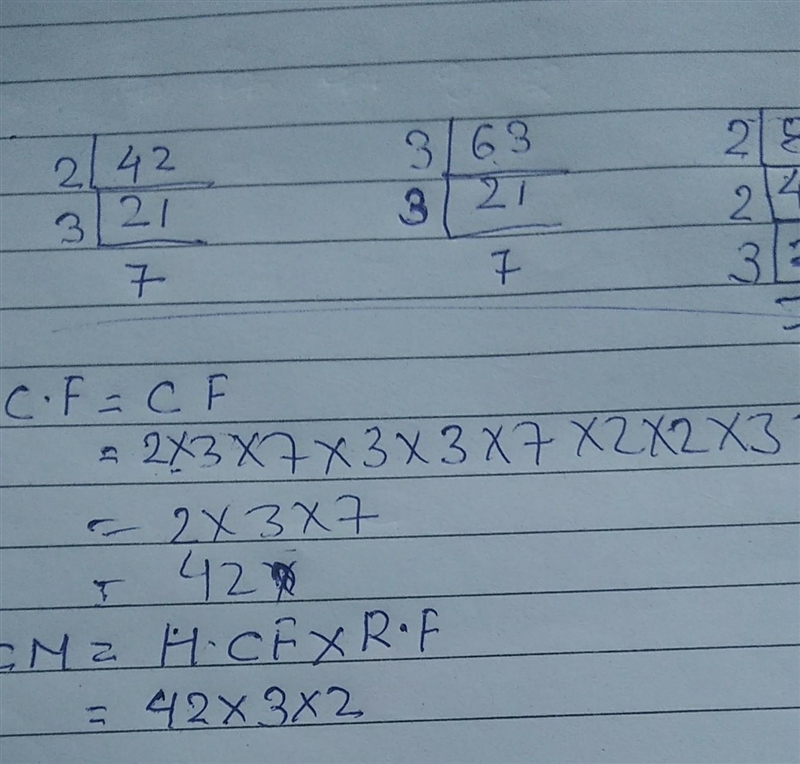 2 42 3 63 2
3 21 3 21 2 4
7 7 3
C.F = C F
= 2×3×7×3×3×7×2×2×3
= 2×3×7
= 42
M = H.CF×R.F
= 42×3×2